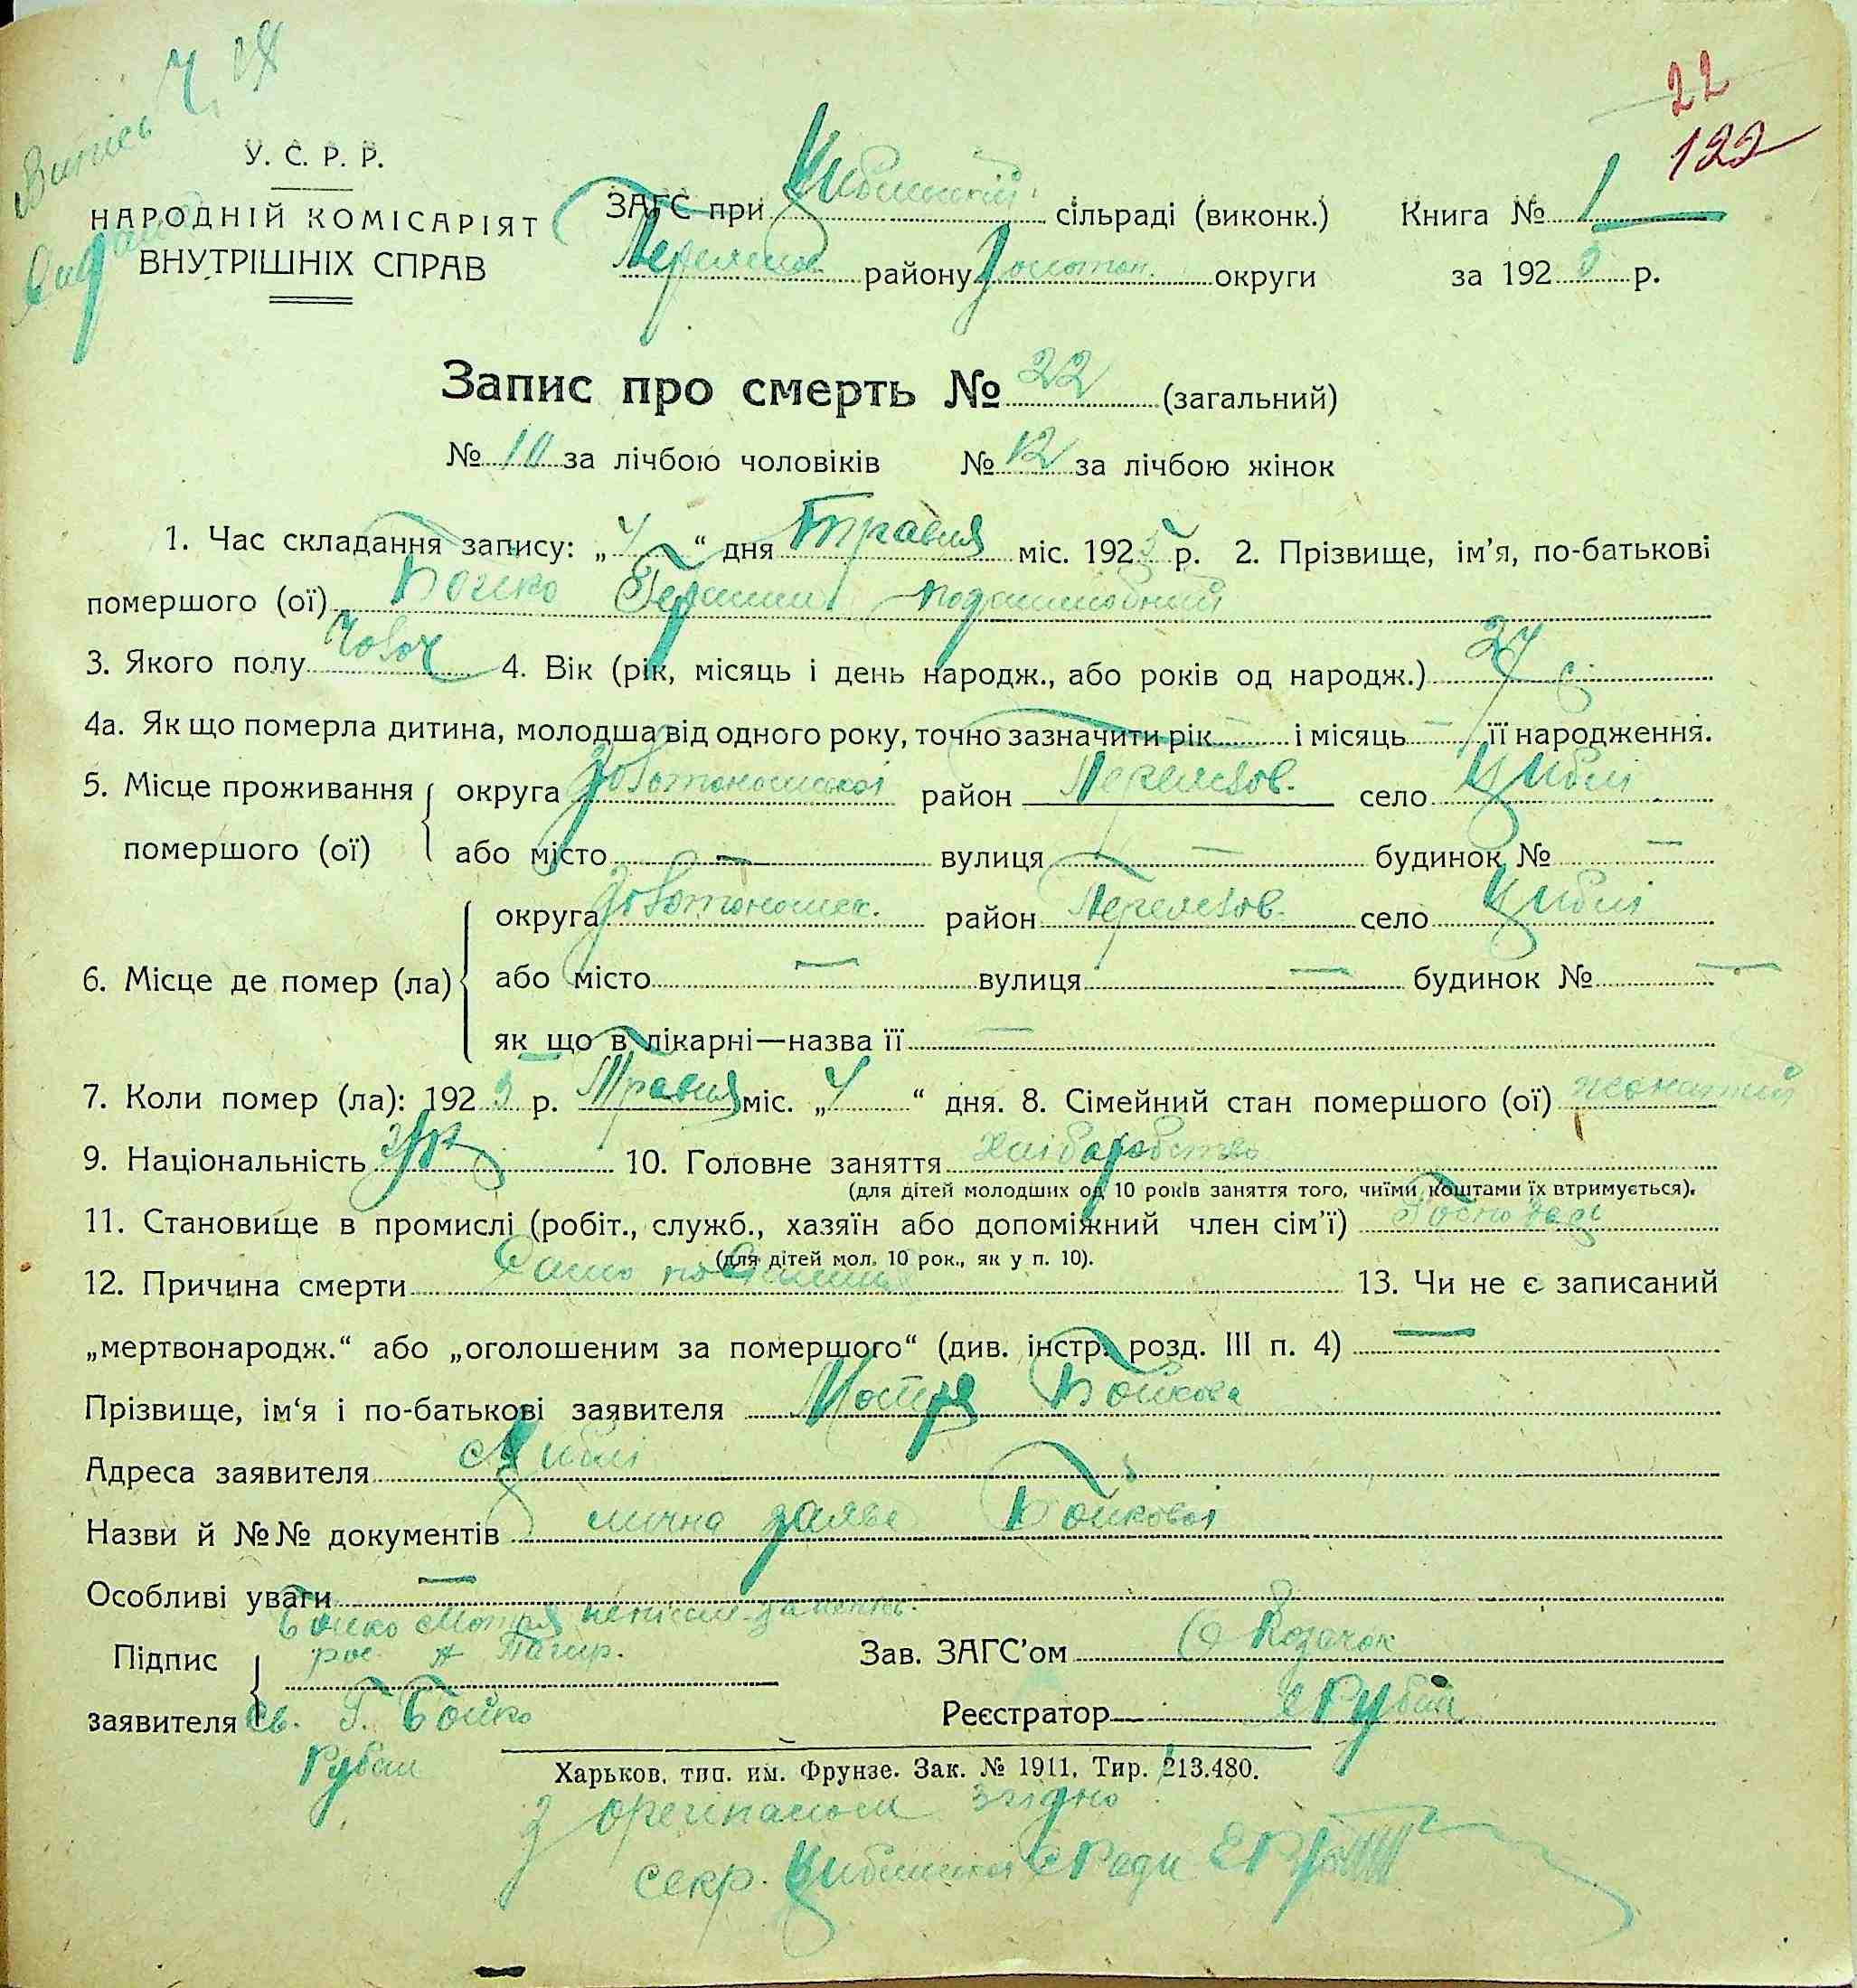 22
122
У. С. Р. Р.
НАРОДНІЙ КОМІСАРІЯТ
ВНУТРІШНІХ СПРАВ
ЗАГС при Циблинській сільраді (виконк.) Книга № 1
Переяслов району Золотон. округи за 1925 р.
Запис про смерть № 22 (загальний)
№ 10 за лічбою чоловіків № 12 за лічбою жінок
1. Час складання запису: „4“ дня Травня міс. 1925 р. 2. Прізвище, ім’я, по-батькові
помершого (ої) Бойко Герасим
3. Якого полу 4. Вік (рік, місяць і день народж., або років од народж.)
4а. Як що померла дитина, молодша від одного року, точно зазначити рік — і місяць — її народження.
5. Місце проживання округа Золотоношської район Переясов. село Циблі
помершого (ої) або місто — вулиця — будинок № —
округа Золотоношск. район Переясов. село Циблі
6. Місце де помер (ла) або місто — вулиця — будинок № —
як що в лікарні—назва її —
7. Коли помер (ла): 1925 р. Травня міс. „4“ дня. 8. Сімейний стан помершого (ої) жонатий
9. Національність укр 10. Головне заняття хліборобство
(для дітей молодших од 10 років заняття того, чиїми коштами їх втримується).
11. Становище в промислі (робіт., служб., хазяїн або допоміжний член сім’ї)
(для дітей мол. 10 рок., як у п. 10).
12. Причина смерти 13. Чи не є записаний
„мертвонародж.“ або „оголошеним за помершого“ (див. інстр. розд. III п. 4) —
Прізвище, ім‘я і по-батькові заявителя Мотря Бойкова
Адреса заявителя с Циблі
Назви й №№ документів лична заява Бойкової
Особливі уваги —
Бойко Мотря
Підпис рос. Зав. ЗАГС’ом Козачок
заявителя св. Г. Бойко Реєстратор Рубан
Рубан
Харьков, тип. им. Фрунзе. Зак. № 1911, Тир. 213.480.
З орегіналом згідно
секр. Циблинської с Ради